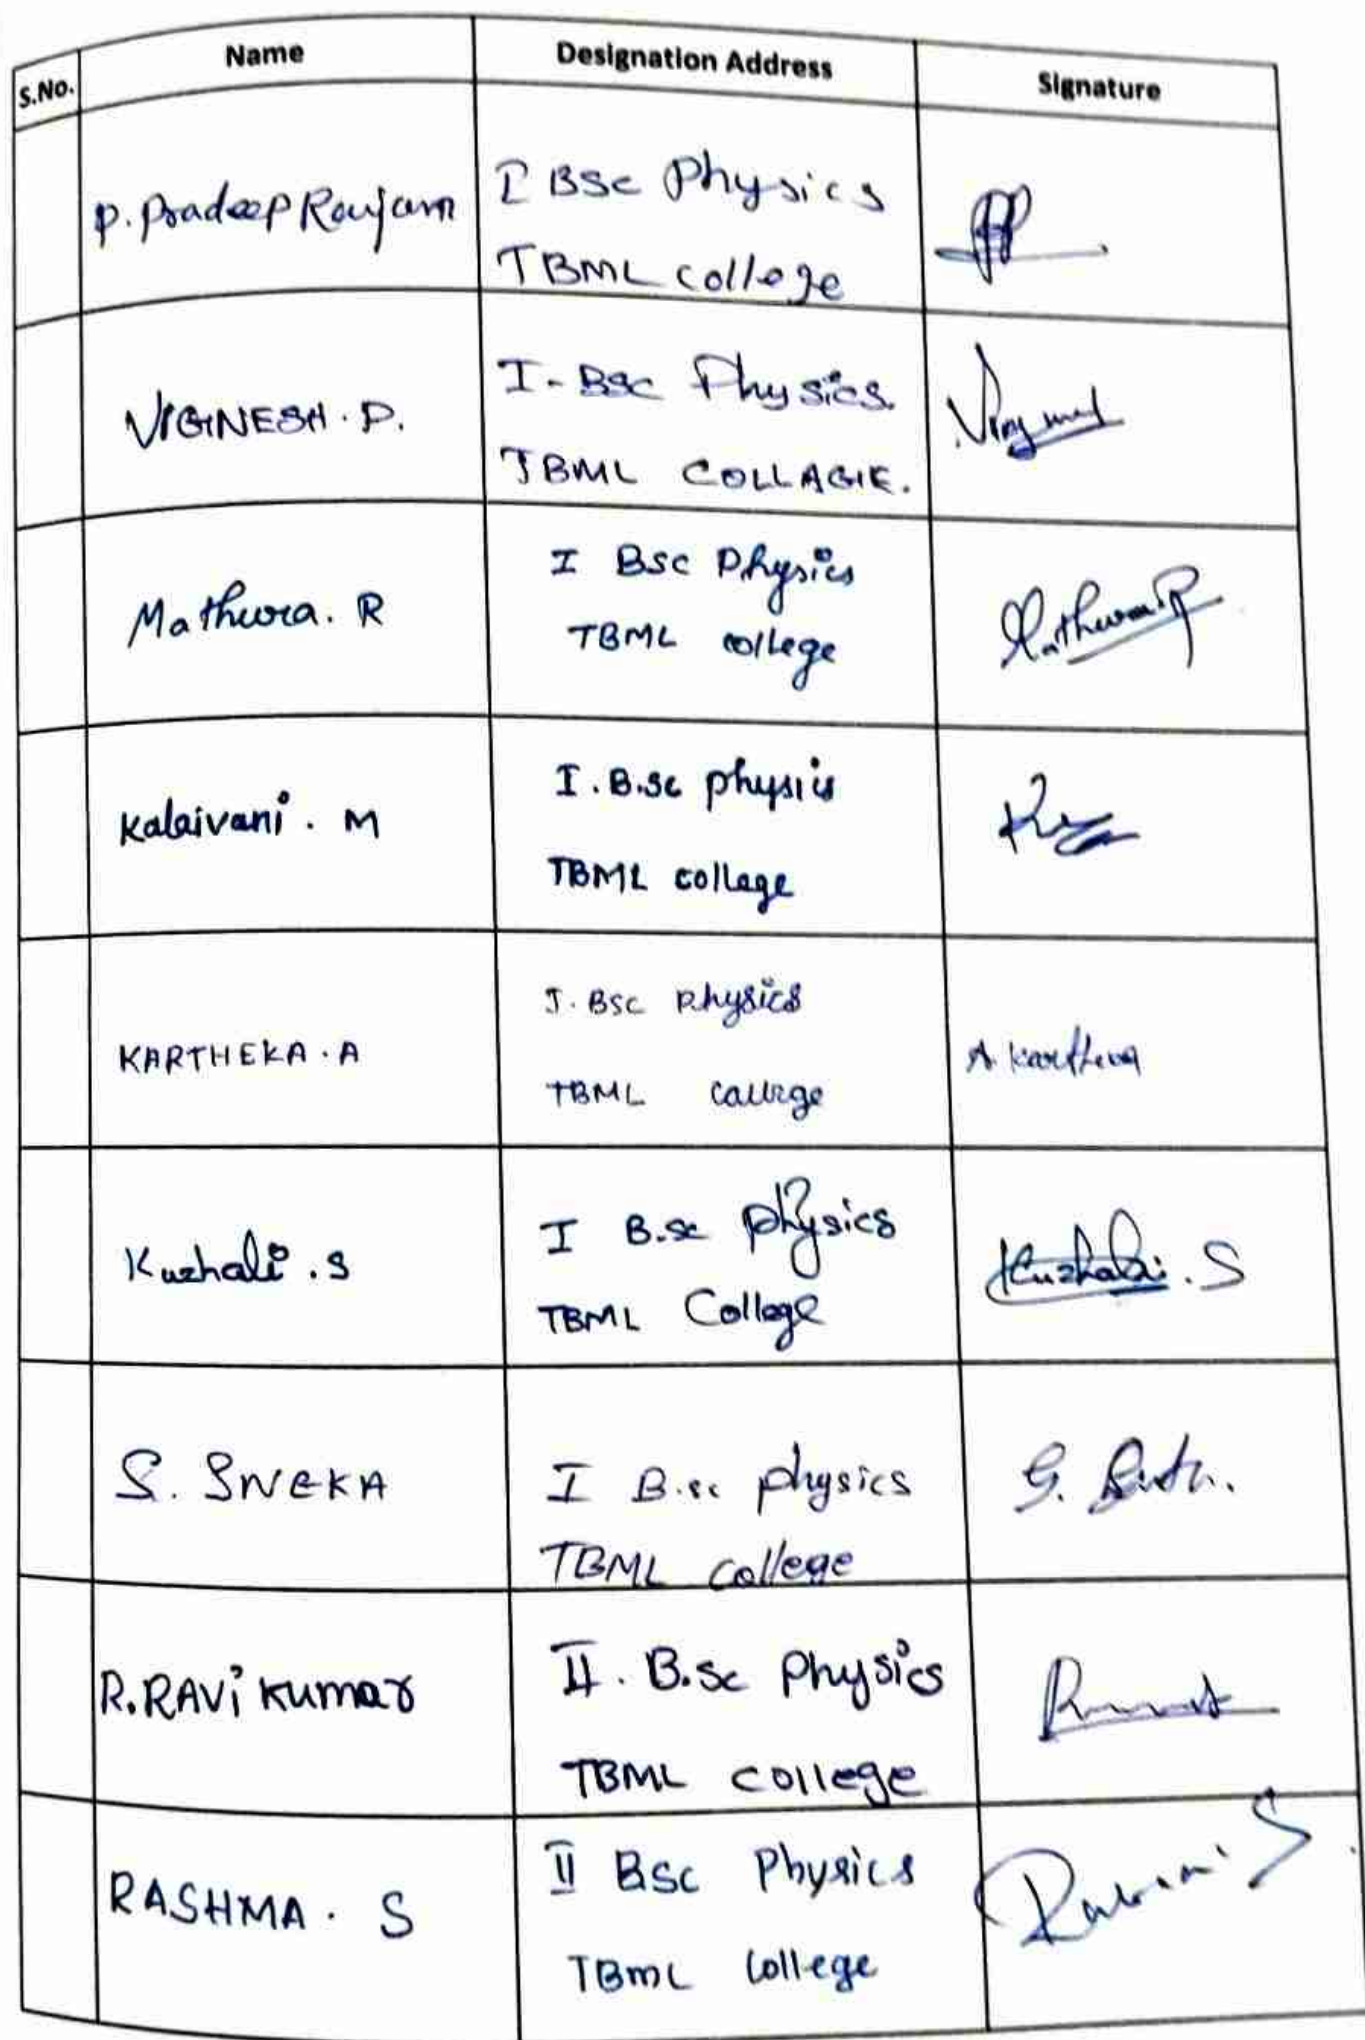 S.No. Name Designation Address Signature
P. Pradeep Ranjam I BSc Physics
TBML college
VIGNESH. P. I - BSc Physics.
TBML COLLAGE.
Mathura. R I BSc Physics Mathura.R
TBML college
Kalaivani. M I. B.Sc physics
TBML college
KARTHEKA. A I. BSC Physics A. Karthena
TBML
Kuzhali. S I B.Sc physics Kuzhali. S
TBML College
S. SNEKA I B.sc physics
TBML college
R. RAVi Kumar II. B.Sc Physics
TBML college
RASHMA. S II BSc Physics
TBML College